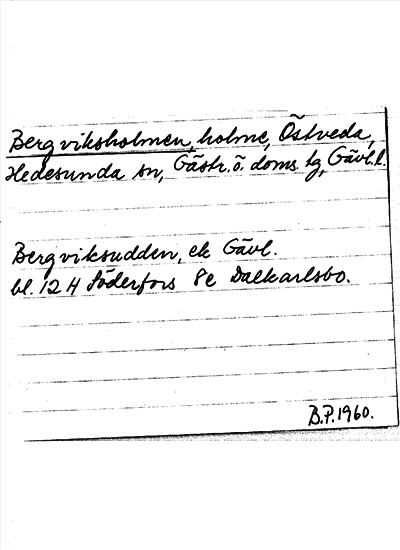 Bergviksholmen, holme, Östveda,
Hedesunda sn, Gästr. ö. doms. tg, Gävl. l.
Bergviksudden, ek Gävl.
bl. 12 H Söderfors 8e Dalkarlsbo.
B.P. 1960.